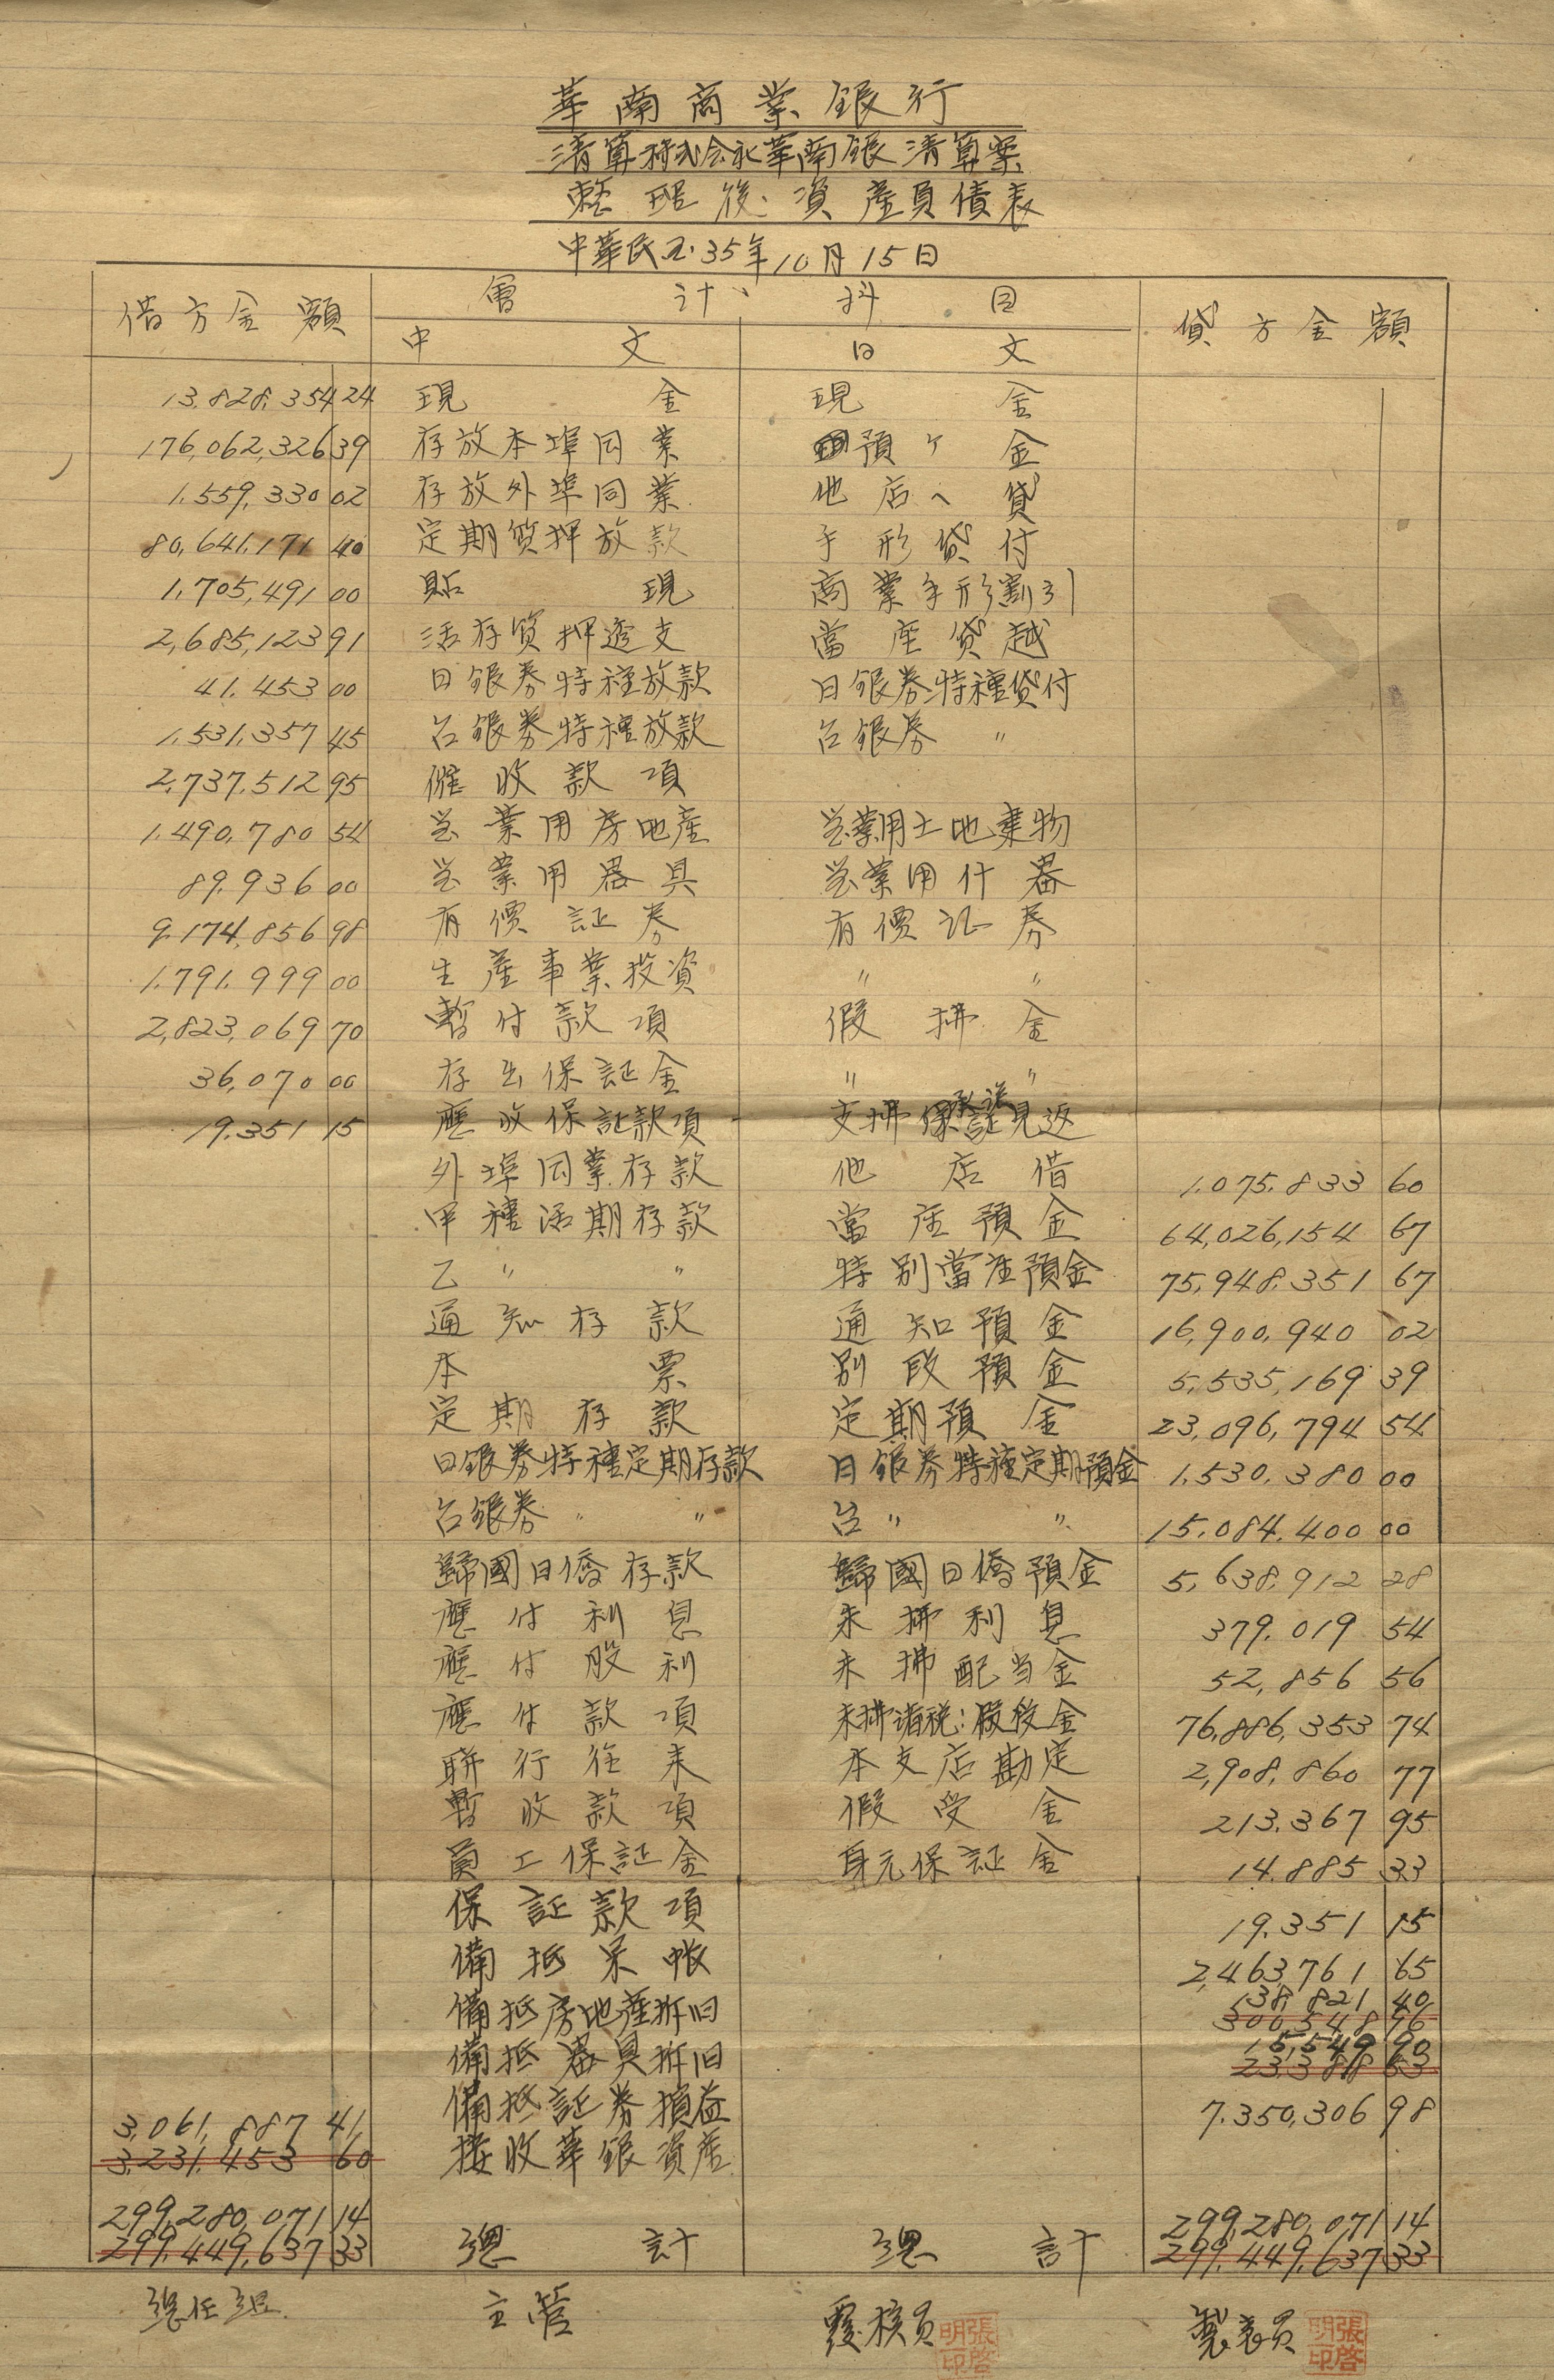 華南商業銀行
清算株式会社華南銀清算案
整理後資產負債表
中華民国35年10月15日
借方金額 會計科目 貸方金額
中文 日文
13,828,354 24 現金 現金
176,062,326 39 存放本埠同業 預ケ金
1,559,330 02 存放外埠同業 他店へ貸
80,641,171 40 定期質押放款 手形貸付
1,705,491 00 貼現 商業手形割引
2,685,123 91 活存質押透支 當座貸越
41,453 00 日銀券特種放款 日銀券特種貸付
1,531,357 45 台銀券特種放款 台銀券 〃
2,737,512 95 催收款項
1,490,780 54 营業用房地產 营業用土地建物
89,936 00 营業用器具 营業用什器
9,174,856 98 有價証券 有價証券
1,791,999 00 生產事業投資 〃 〃
2,823,069 70 暫付款項 假拂金
36,070 00 存出保証金 〃 〃
19,351 15 應收保証款項 支拂承諾見返
外埠同業存款 他店借 1,075,833 60
甲種活期存款 當座預金 64,026,154 67
乙 〃 〃 特別當座預金 75,948,351 67
通知存款 通知預金 16,900,940 02
本票 別段預金 5,535,169 39
定期存款 定期預金 23,096,794 54
日銀券特種定期存款 日銀券特種定期預金 1,530,380 00
台銀券 〃 〃 台 〃 〃 15,084,400 00
歸國日僑存款 歸國日僑預金 5,638,912 28
應付利息 未拂利息 379,019 54
應付股利 未拂配当金 52,856 56
應付款項 未拂諸税:假受金 76,886,353 74
聯行往来 本支店勘定 2,908,860 77
暫收款項 假受金 213,367 95
員工保証金 身元保証金 14,885 33
保証款項 19,351 15
備抵呆帐 2,463,761 65
備抵房地產折旧 138,821 40
300,548 96
備抵器具折旧 15,549 90
23,388 53
備抵証券損益 7,350,306 98
3,061,887 41
3,231,453 60 接收華銀資產
299,280,071 14 299,280,071 14
299,449,637 33 總計 總計 299,449,637 33
總任 主管 覆核員 製表員
張啓明印 張啓明印